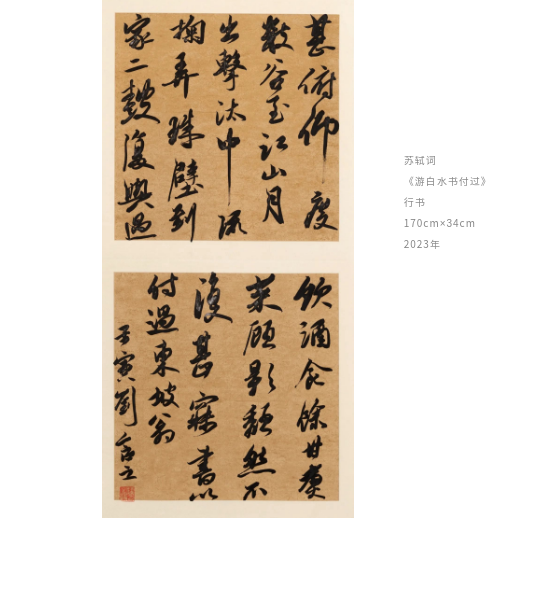 甚俯仰度
數谷至江山月
出擊汰中流
掬弄珠璧到
家二鼓復與過
飲酒食餘甘煮
菜顧影頹然不
復甚寐書以
付過東坡翁
壬寅劉
苏轼词
《游白水书付过》
行书
170cm×34cm
2023年